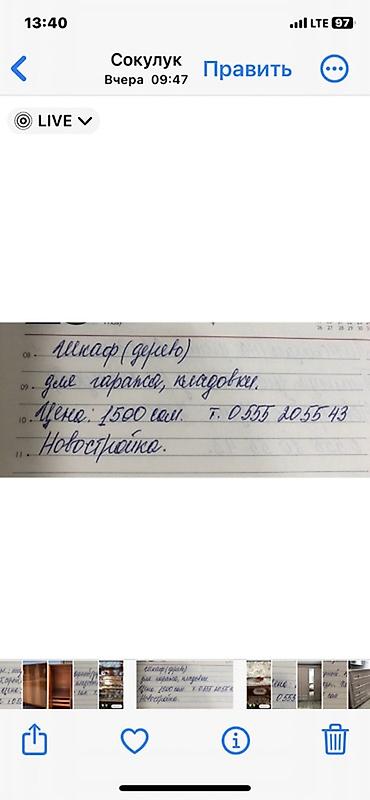 13:40
LTE 97
Сокулук
Вчера 09:47
Править
LIVE
08 Шкаф (дерево)
09 для гаража, кладовки.
10 Цена: 1500 сом. т. 0555 205543
11 Новостройка.